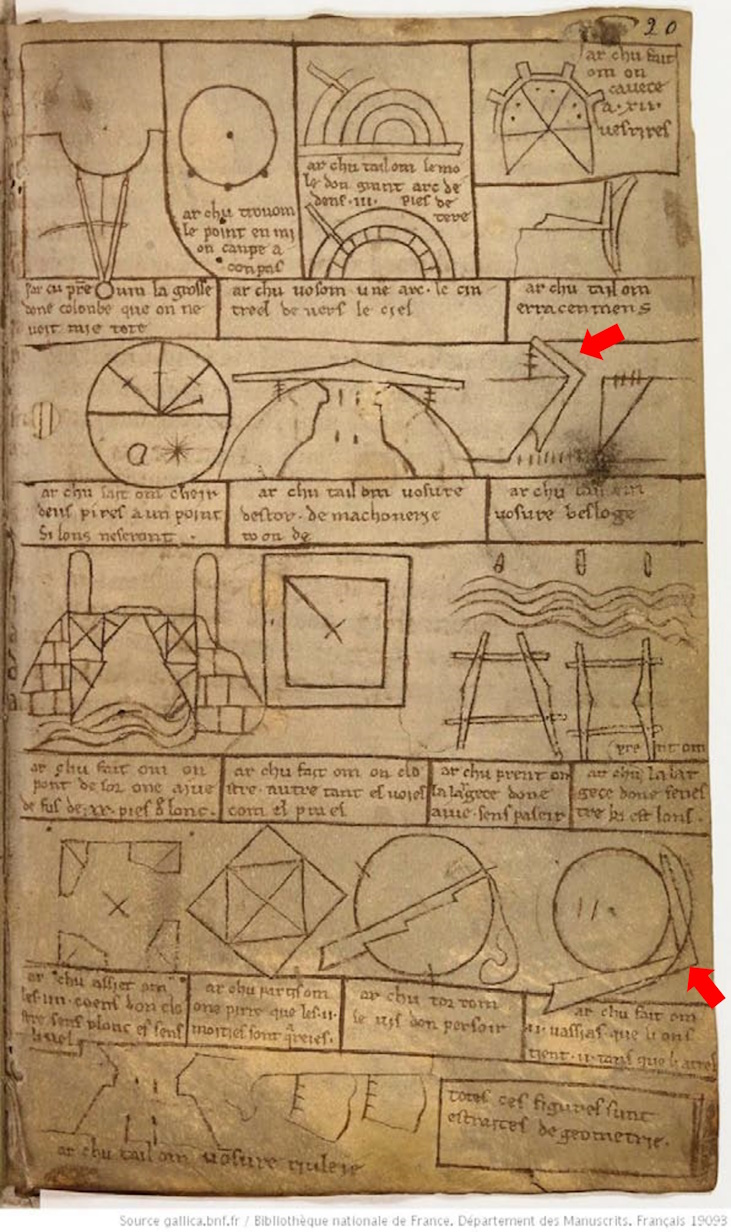 20
ar chu fait
om on
cavece
a · xii ·
vesrires
ar chu tailom le mo
le don grant arc de
dens · iii · pies de
tere
ar chu trovom
le point en mi
on canpe a
conpas
par cu pre um la grosse
done colonbe que on ne
voit mie tote
ar chu vosom une arc · le cin
treel de vers le ciel
ar chu tailom
erracenmens
ar chu fait om cheir
deus pires a un point
si lons neseront ·
ar chu tail om vosure
destor · de machonerie
roonde
ar chu tail om
vosure besloge
ar chu fait om on
pont de sor one aive
de fus de · xx · pies de lonc ·
ar chu fait om on clo
stre · autre tant es voies
com el praes
ar chu prent om
la largece done
aive · sens paseir
prent om
ar chu la lar
gece done fenes
tre ki est lons ·
ar chu assiet om
les · iiii · coens don clo
stre sens plonc et sens
livel
ar chu partis om
one pirre que les · ii ·
moities sont qreies ·
ar chu tor tom
le vis don persoir
ar chu fait om
· ii · vassias que li ons
tient · ii · tans que li atres
ar chu tail om vosure riuleie
totes ces figures sunt
estraites de geometrie ·
Source gallica.bnf.fr / Bibliothèque nationale de France. Département des Manuscrits. Français 19093